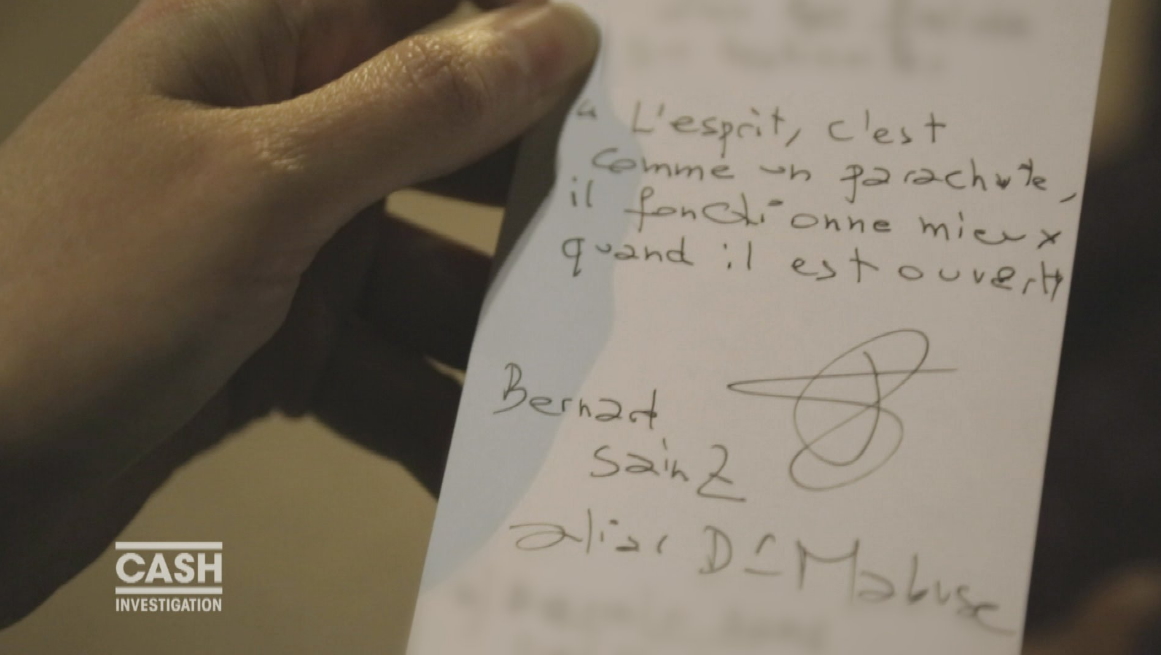 “ L'esprit, c'est
comme un parachute,
il fonctionne mieux
quand il est ouvert
Bernard
SainZ
alias Dr Mabuse
CASH
INVESTIGATION